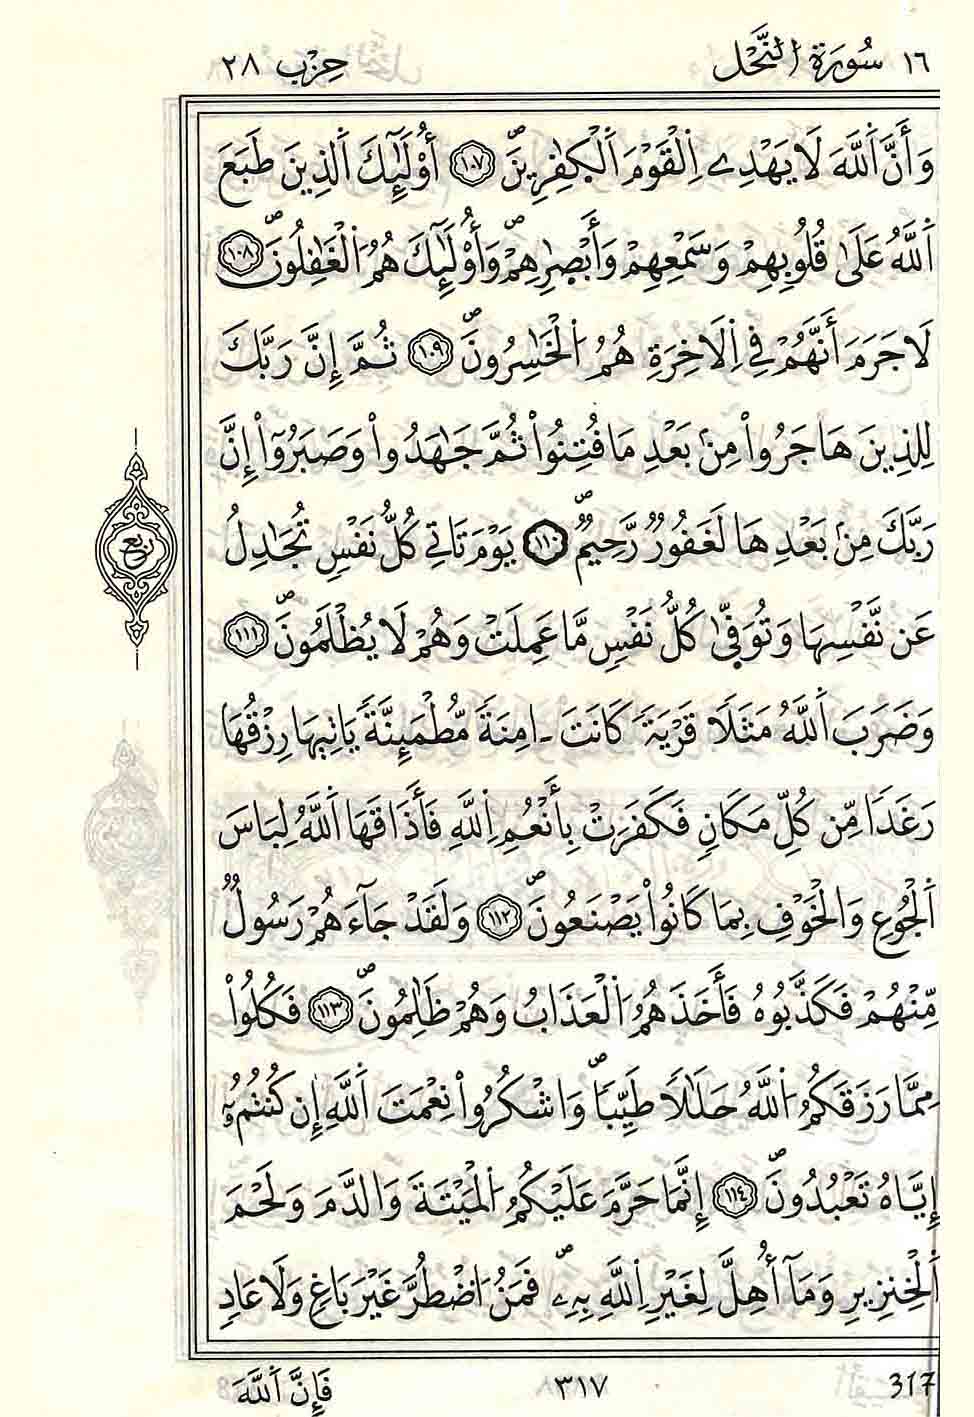 ١٦ سُورَةُ النَّحْلِ حِزْب ٢٨
وَأَنَّ اَ۬للَّهَ لَا يَهْدِے اِ۬لْقَوْمَ اَ۬لْكٰفِرِينَۖ ١٠٧ أُوْلَٰٓئِكَ اَ۬لذِينَ طَبَعَ
اَ۬للَّهُ عَلَىٰ قُلُوبِهِمْ وَسَمْعِهِمْ وَأَبْصٰرِهِمْۖ وَأُوْلَٰٓئِكَ هُمُ اُ۬لْغَٰفِلُونَۖ ١٠٨
لَا جَرَمَ أَنَّهُمْ فِے اِ۬لَاخِرَةِ هُمُ اُ۬لْخَٰسِرُونَۖ ١٠٩ ثُمَّ إِنَّ رَبَّكَ
لِلذِينَ هَاجَرُواْ مِنۢ بَعْدِ مَا فُتِنُواْ ثُمَّ جَٰهَدُواْ وَصَبَرُوٓاْ إِنَّ
رَبَّكَ مِنۢ بَعْدِهَا لَغَفُورٞ رَّحِيمٞۖ ١١٠ يَوْمَ تَاتِے كُلُّ نَفْسٖ تُجَٰدِلُ
ربع
عَن نَّفْسِهَا وَتُوَفّ۪يٰ كُلُّ نَفْسٖ مَّا عَمِلَتْ وَهُمْ لَا يُظْلَمُونَۖ ١١١
وَضَرَبَ اَ۬للَّهُ مَثَلاٗ قَرْيَةٗ كَانَتَ اٰمِنَةٗ مُّطْمَئِنَّةٗ يَاتِيهَا رِزْقُهَا
رَغَداٗ مِّن كُلِّ مَكَانٖ فَكَفَرَتْ بِأَنْعُمِ اِ۬للَّهِ فَأَذَٰقَهَا اَ۬للَّهُ لِبَاسَ
اَ۬لْجُوعِ وَالْخَوْفِ بِمَا كَانُواْ يَصْنَعُونَۖ ١١٢ وَلَقَدْ جَآءَهُمْ رَسُولٞ
مِّنْهُمْ فَكَذَّبُوهُ فَأَخَذَهُمُ اُ۬لْعَذَابُ وَهُمْ ظَٰلِمُونَۖ ١١٣ فَكُلُواْ
مِمَّا رَزَقَكُمُ اُ۬للَّهُ حَلَٰلاٗ طَيِّباٗۖ وَاشْكُرُواْ نِعْمَتَ اَ۬للَّهِ إِن كُنتُمُۥٓ
إِيَّاهُ تَعْبُدُونَۖ ١١٤ إِنَّمَا حَرَّمَ عَلَيْكُمُ اُ۬لْمَيْتَةَ وَالدَّمَ وَلَحْمَ
اَ۬لْخِنزِيرِ وَمَآ أُهِلَّ لِغَيْرِ اِ۬للَّهِ بِهِۦۖ فَمَنُ اُ۟ضْطُرَّ غَيْرَ بَاغٖ وَلَا عَادٖ
317 ٣١٧ فَإِنَّ اَ۬للَّهَ